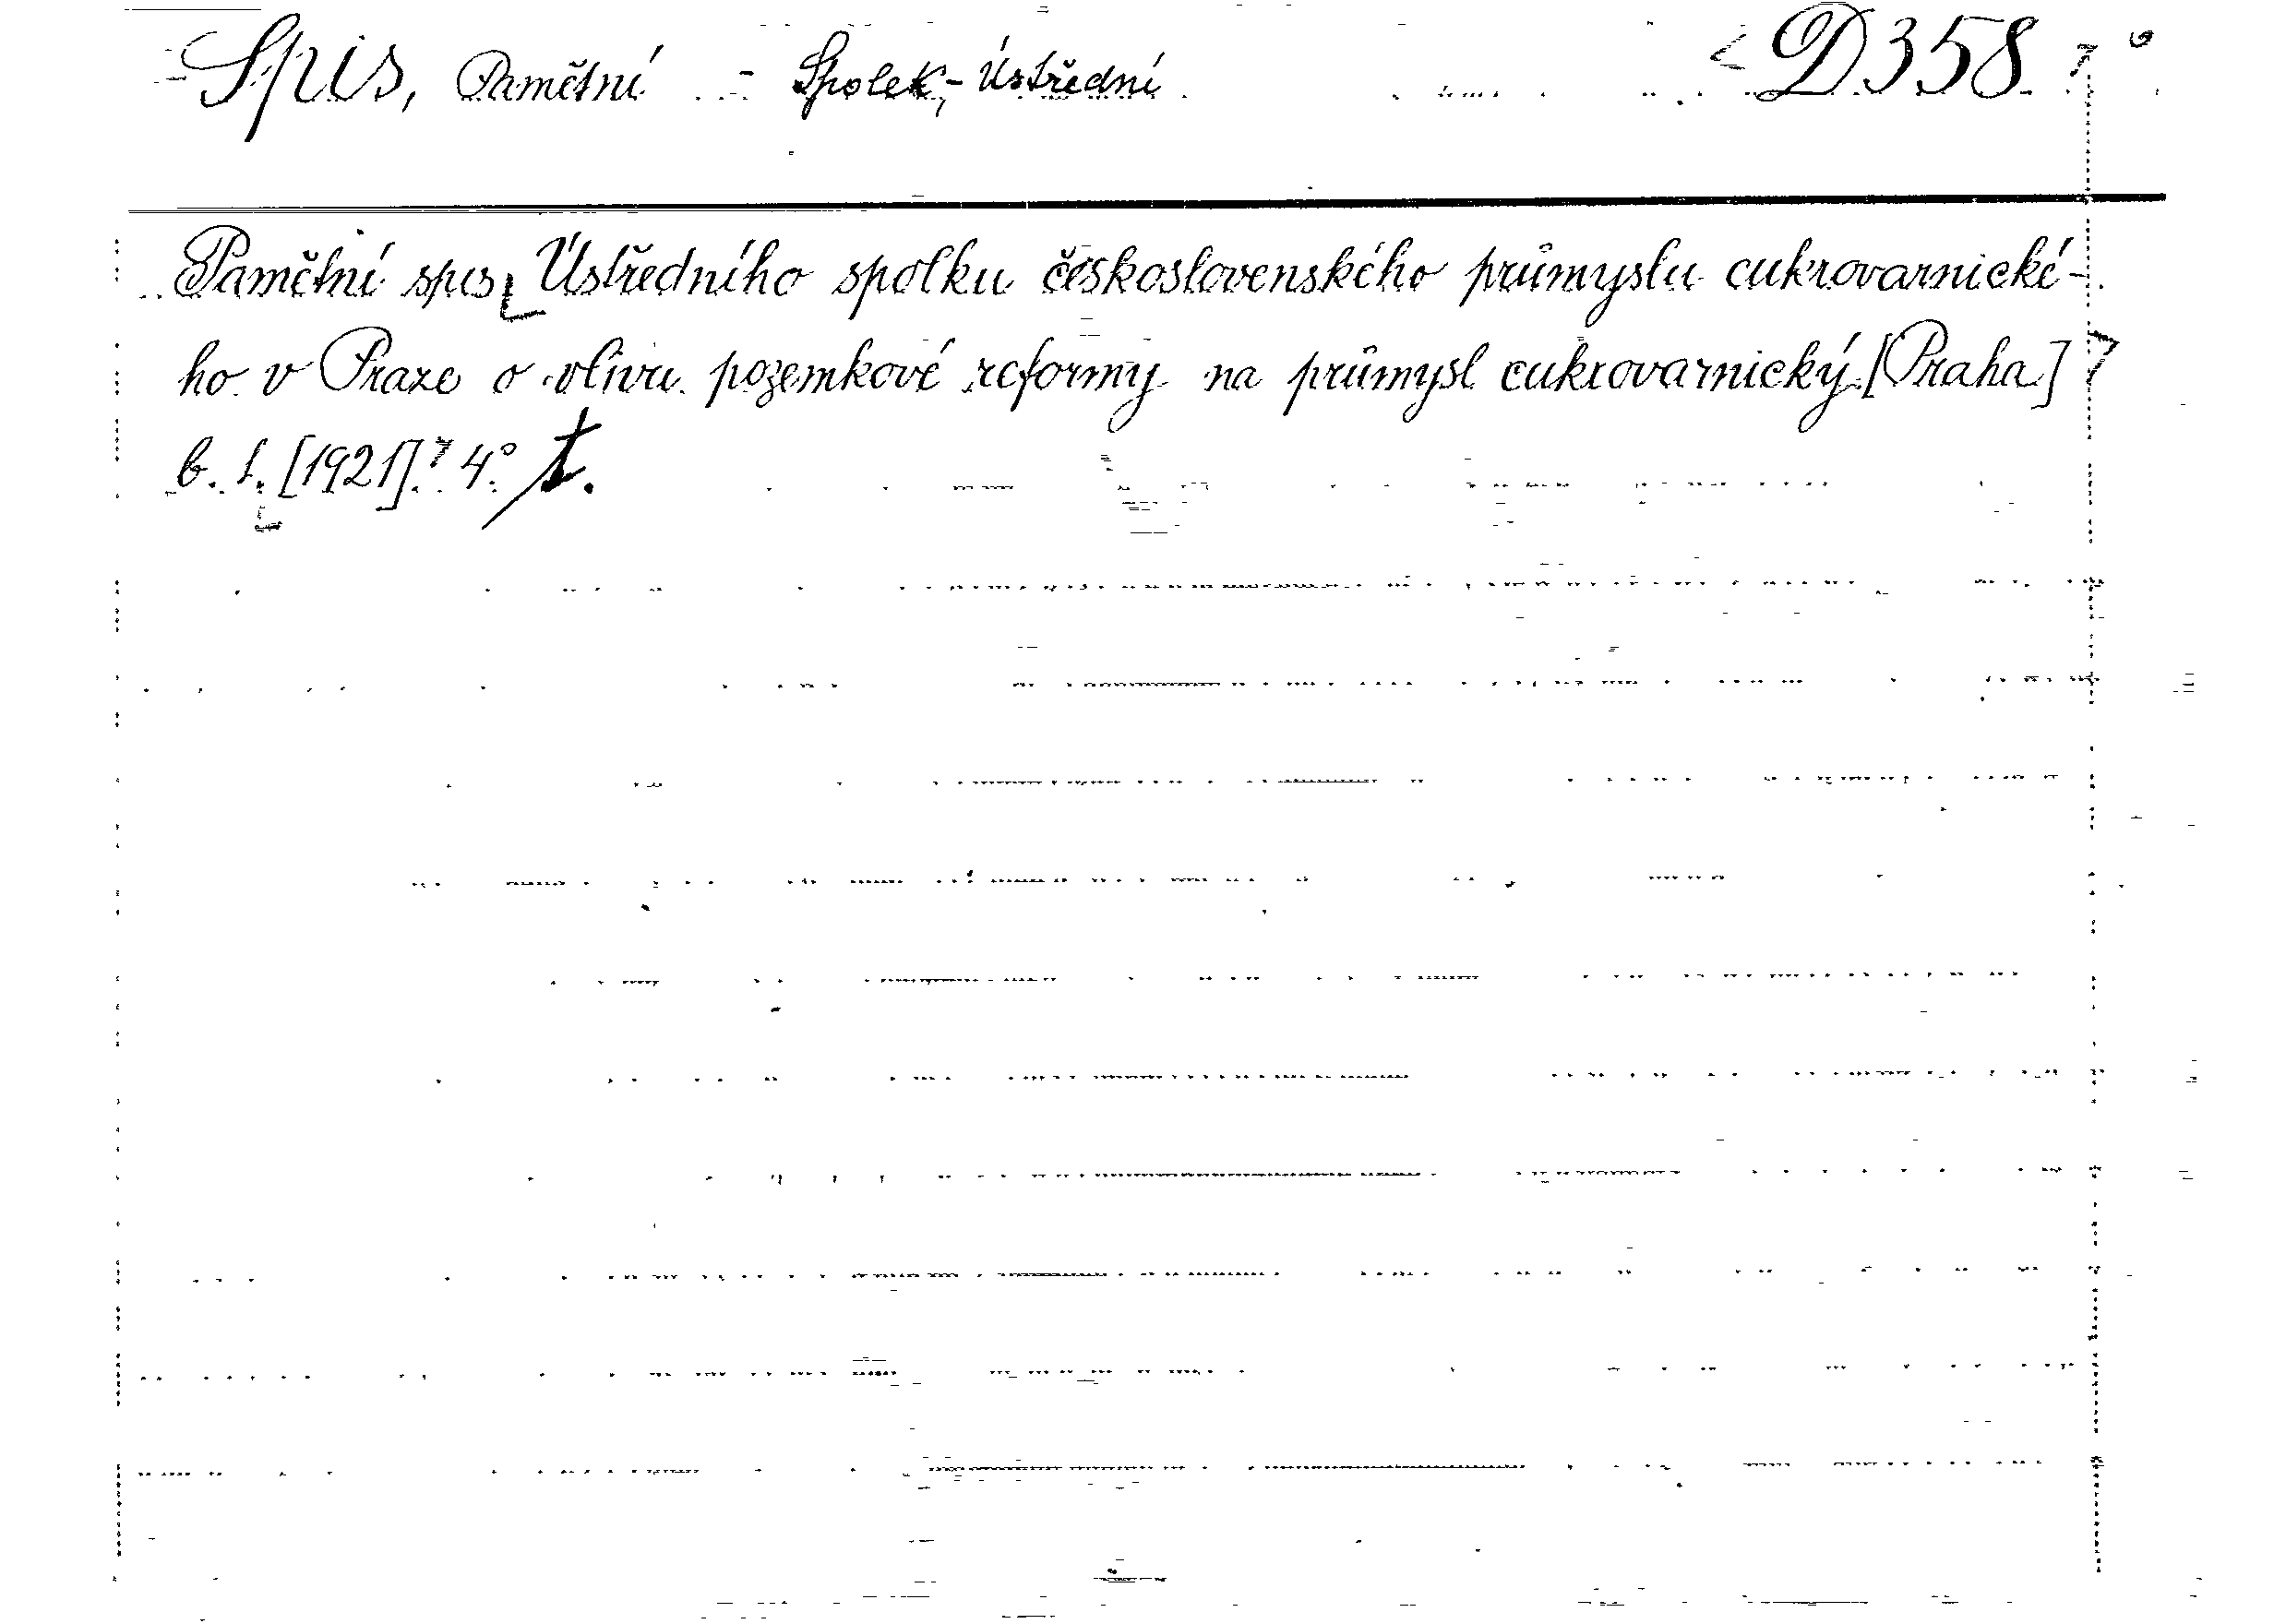 Spis, Pamětní - Spolek, - Ústřední D 358
Pamětní spis Ústředního spolku československého průmyslu cukrovarnické-
ho v Praze o vlivu pozemkové reformy na průmysl cukrovarnický. [Praha]
b. t. [1921]. 4° t.